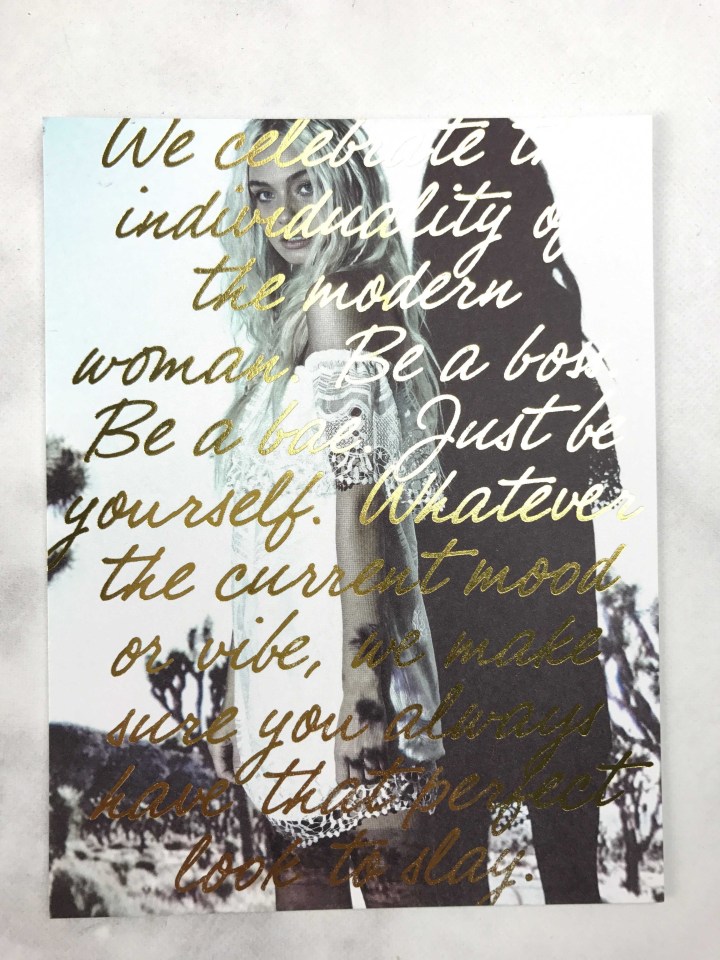 We celebrate the
individuality of
the modern
woman. Be a boss.
Be a bae. Just be
yourself. Whatever
the current mood
or vibe, we make
sure you always
have that perfect
look to slay.